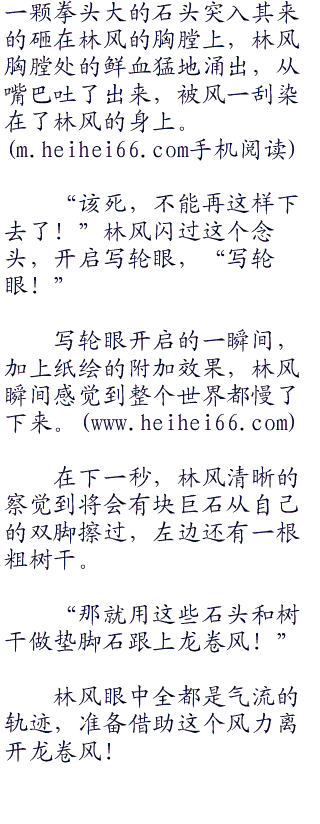 一颗拳头大的石头突入其来
的砸在林风的胸膛上，林风
胸膛处的鲜血猛地涌出，从
嘴巴吐了出来，被风一刮染
在了林风的身上。
(m.heihei66.com手机阅读)
“该死，不能再这样下
去了！”林风闪过这个念
头，开启写轮眼，“写轮
眼！”
写轮眼开启的一瞬间，
加上纸绘的附加效果，林风
瞬间感觉到整个世界都慢了
下来。(www.heihei66.com)
在下一秒，林风清晰的
察觉到将会有块巨石从自己
的双脚擦过，左边还有一根
粗树干。
“那就用这些石头和树
干做垫脚石跟上龙卷风！”
林风眼中全都是气流的
轨迹，准备借助这个风力离
开龙卷风！